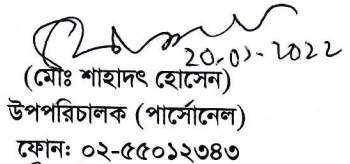 20-01-2022
(মোঃ শাহাদৎ হোসেন)
উপপরিচালক (পার্সোনেল)
ফোনঃ ০২-৫৫০১২৩৪৩